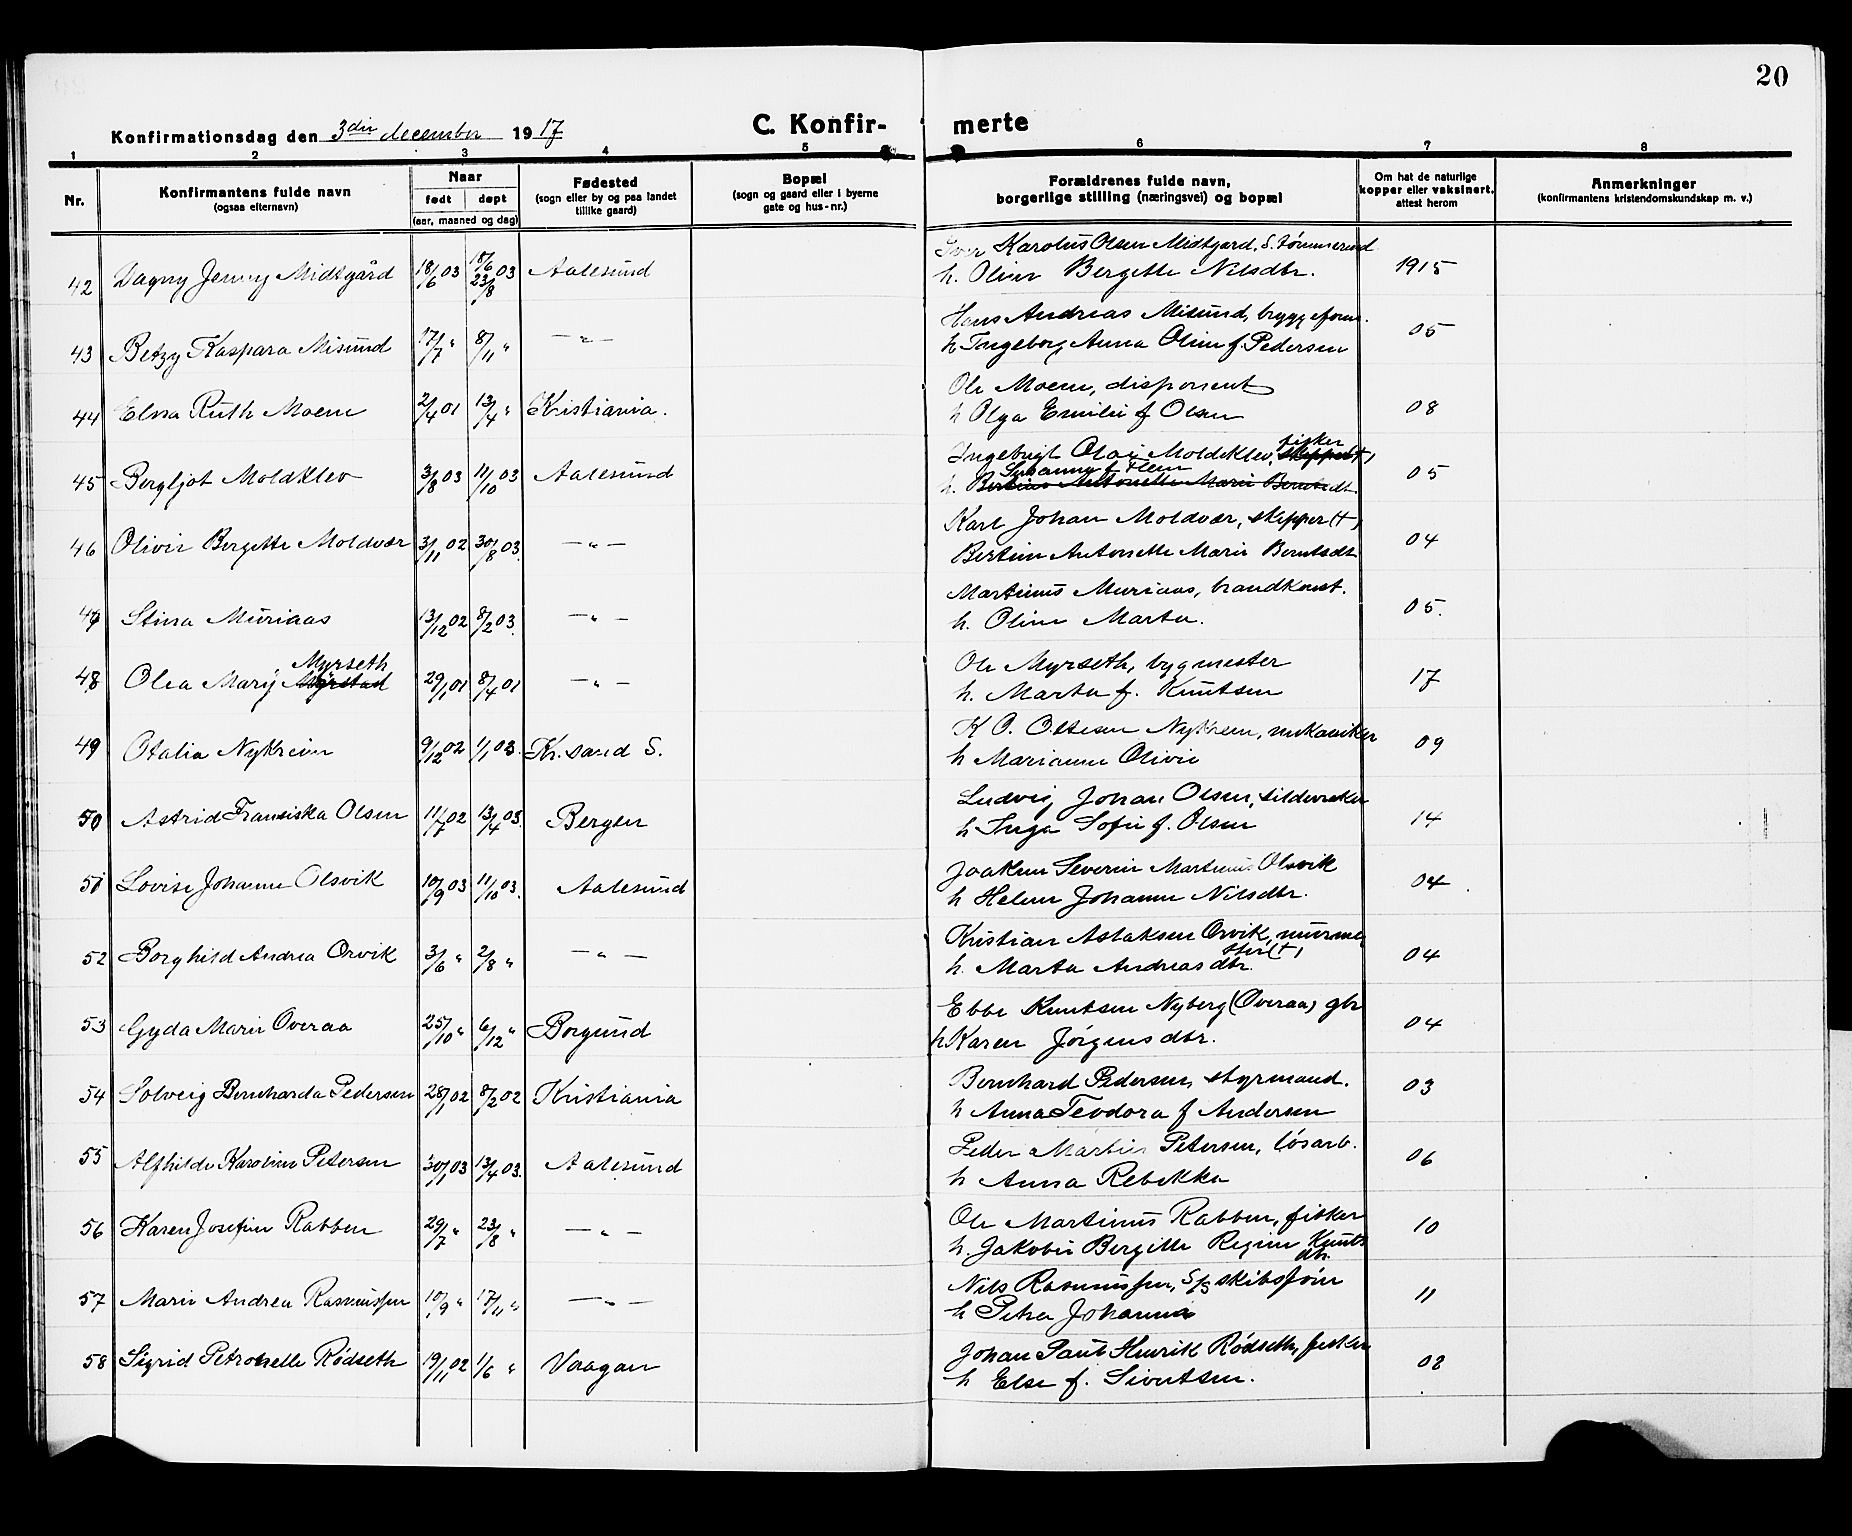 20
Konfirmationsdag den 3die december 1917
C. Konfir- merte
1 2 3 4 5 6 7 8
Nr.
Konfirmantens fulde navn
(ogsaa efternavn)
Naar
født døpt
(aar, maaned og dag)
Fødested
(sogn eller by og paa landet
tillike gaard)
Bopæl
(sogn og gaard eller i byerne
gate og hus-nr.)
Forældrenes fulde navn,
borgerlige stilling (næringsvei) og bopæl
Om hat de naturlige
kopper eller vaksinert,
attest herom
Anmerkninger
(konfirmantens kristendomskundskap m. v.)
Iver Karolus Olsen Midtgard, s. tømmermd
42 Dagny Jenny Midtgård 18/6 03 18/6 23/8 03 Aalesund h. Oline Bergette Nilsdtr. 1915
Hans Andreas Misund, bryggeform.
43 Betzy Kaspara Misund 17/7 " 8/11 " —"— h Ingeborg Anna Oline f. Pedersen 05
Ole Moen, disponent
44 Elna Ruth Moen 2/4 01 13/4 " Kristiania. h Olga Emilie f Olsen 08
fisker
Ingebrigt Olai Moldeklev, skipper(+)
Susanna f Flem
45 Bergljot Moldklev 3/8 03 11/10 03 Aalesund h. Bertine Antonette Marie Berntsdtr. 05
Karl Johan Moldvær, skipper(+)
46 Olivie Bergette Moldvær 3/11 02 30/8 03. —"— Bertine Antonette Marie Berntsdtr 04
Martinus Muriaas, brandkonst.
47 Stina Muriaas 13/12 02 8/2 03. —"— h. Oline Marta. 05.
Myrseth
Ole Myrseth, bygmester
48 Olea Marij Myrstad 29/1 01 8/4 01 —"— h. Marta f. Knutsen 17
K O. Ottesen Nykrem, mekaniker
49 Otalia Nykreim 9/12 02 1/1 03. Kr.sand S. h Marianne Olivie 09
Ludvig Johan Olsen, sildevraker
50 Astrid Fransiska Olsen 11/7 02 13/4 03. Bergen h Inga Sofie f. Olsen 14
Joakim Severin Martinus Olsvik
51 Lovise Johanne Olsvik 10/9 03 11/10 03. Aalesund h Helene Johanne Nilsdtr. 04
Kristian Aslaksen Orvik, murme-
ster(+)
52 Borghild Andrea Orvik 3/6 " 2/8 " —"— h. Marta Andreasdtr. 04
Ebbe Knutsen Nyberg (Overaa) gbr
53 Gyda Marie Overaa 25/10 " 6/12 " Borgund h Karen Jørgensdtr. 04
Bernhard Pedersen, styrmand.
54 Solveig Bernharda Pedersen 28/1 02 8/2 02 Kristiania h Anna Teodora f Andersen 03
Peder Martin Petersen, løsarb.
55 Alfhilde Karoline Petersen 30/1 03 13/4 03. Aalesund h Anna Rebekka 06
Ole Martinus Rabben, fisker
56 Karen Josefine Rabben 29/7 " 23/8 " —"— h. Jakobie Bergitte Regine Knuts 10
dtr.
Nils Rasmussen, S/S skibsfører
57 Marie Andrea Rasmussen 10/9 " 17/11 " —"— h Petra Johanna 11
Johan Paul Henrik Rødseth, fisker
58 Sigrid Petronelle Rødseth 19/11 02 1/6 " Vaagan h Else f. Sivertsen. 02